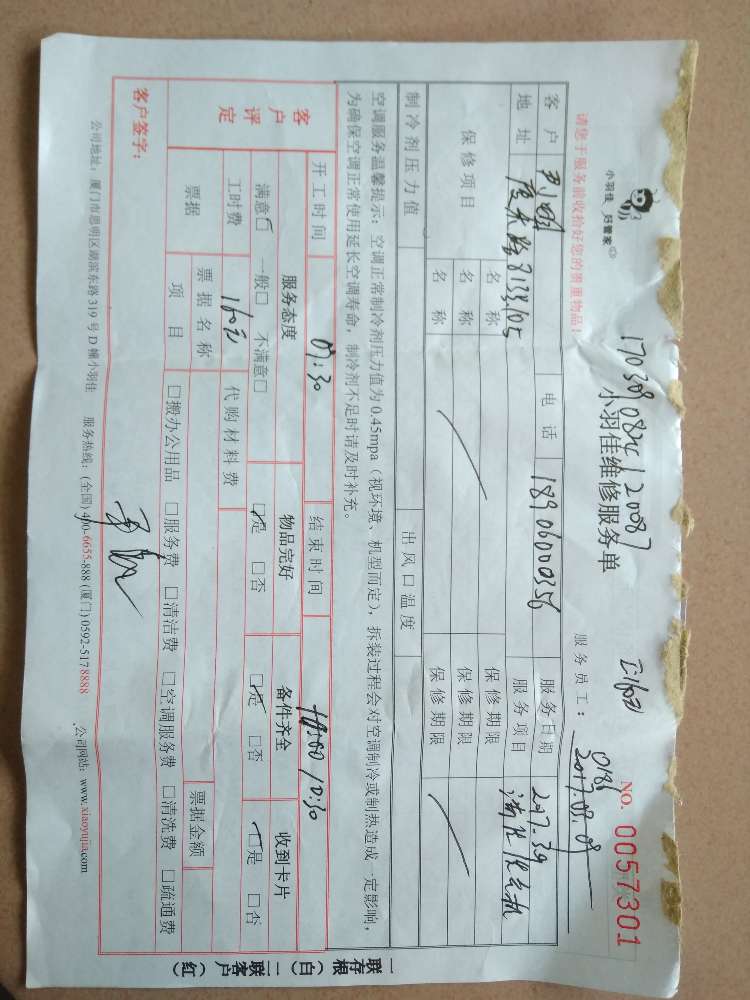 小羽佳 好管家
请您于服务前收拾好您的贵重物品！
1703090824120087
小羽佳维修服务单
NO. 0057301
服务员工：
2017.03.09
客户
电话 18906000356
服务日期 2017.3.9
地址
服务项目
保修项目
名称 保修期限
名称 保修期限
名称 保修期限
制冷剂压力值 出风口温度
空调服务温馨提示：空调正常制冷剂压力值为0.45mpa（视环境、机型而定），拆装过程会对空调制冷或制热造成一定影响，
为确保空调正常使用延长空调寿命，制冷剂不足时请及时补充。
开工时间 09:30 结束时间 10:30
客户评定
服务态度 物品完好 备件齐全 收到卡片
满意☑ 一般□ 不满意□ ☑是 □否 ☑是 □否 ☑是 □否
工时费 160元 代购材料费
票据 票据名称 票据金额
项目 □搬办公用品 □服务费 □清洁费 □空调服务费 □清洗费 □疏通费
客户签字：
公司地址：厦门市思明区湖滨东路319号D幢小羽佳 服务热线：(全国)400-6655-888 (厦门)0592-5178888 公司网站：www.xiaoyujia.com
一联存根（白） 二联客户（红）